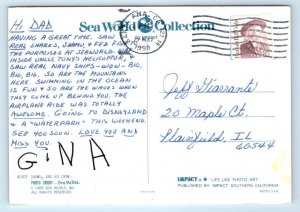 Sea World Collection
1990
HI, DAD
HAVING A GREAT TIME. SAW
REAL SHARKS, SHAMU, & FED FISH TO
THE PORPOISES AT SEAWORLD. WAS
INSIDE UNCLE TONY'S HELICOPTER,
SAW REAL NAVY SHIPS - WOW - BIG,
BIG, BIG. SO ARE THE MOUNTAINS
HERE. SWIMMING IN THE OCEAN
IS FUN & SO ARE THE WAVES WHEN
THEY COME UP BEHIND YOU. THE
AIRPLANE RIDE WAS TOTALLY
AWESOME. GOING TO DISNEYLAND
& A "WATERPARK" THIS WEEKEND.
SEE YOU SOON. LOVE YOU AND
MISS YOU.
GINA
Jeff
20 Maple Ct.
Plainfield, IL
60544
PHOTO CREDIT: Sea World
© 1988 SEA WORLD, INC.
ALL RIGHTS RESERVED
IMPACT LIFE LIKE PHOTO ART
PUBLISHED BY: IMPACT SOUTHERN CALIFORNIA